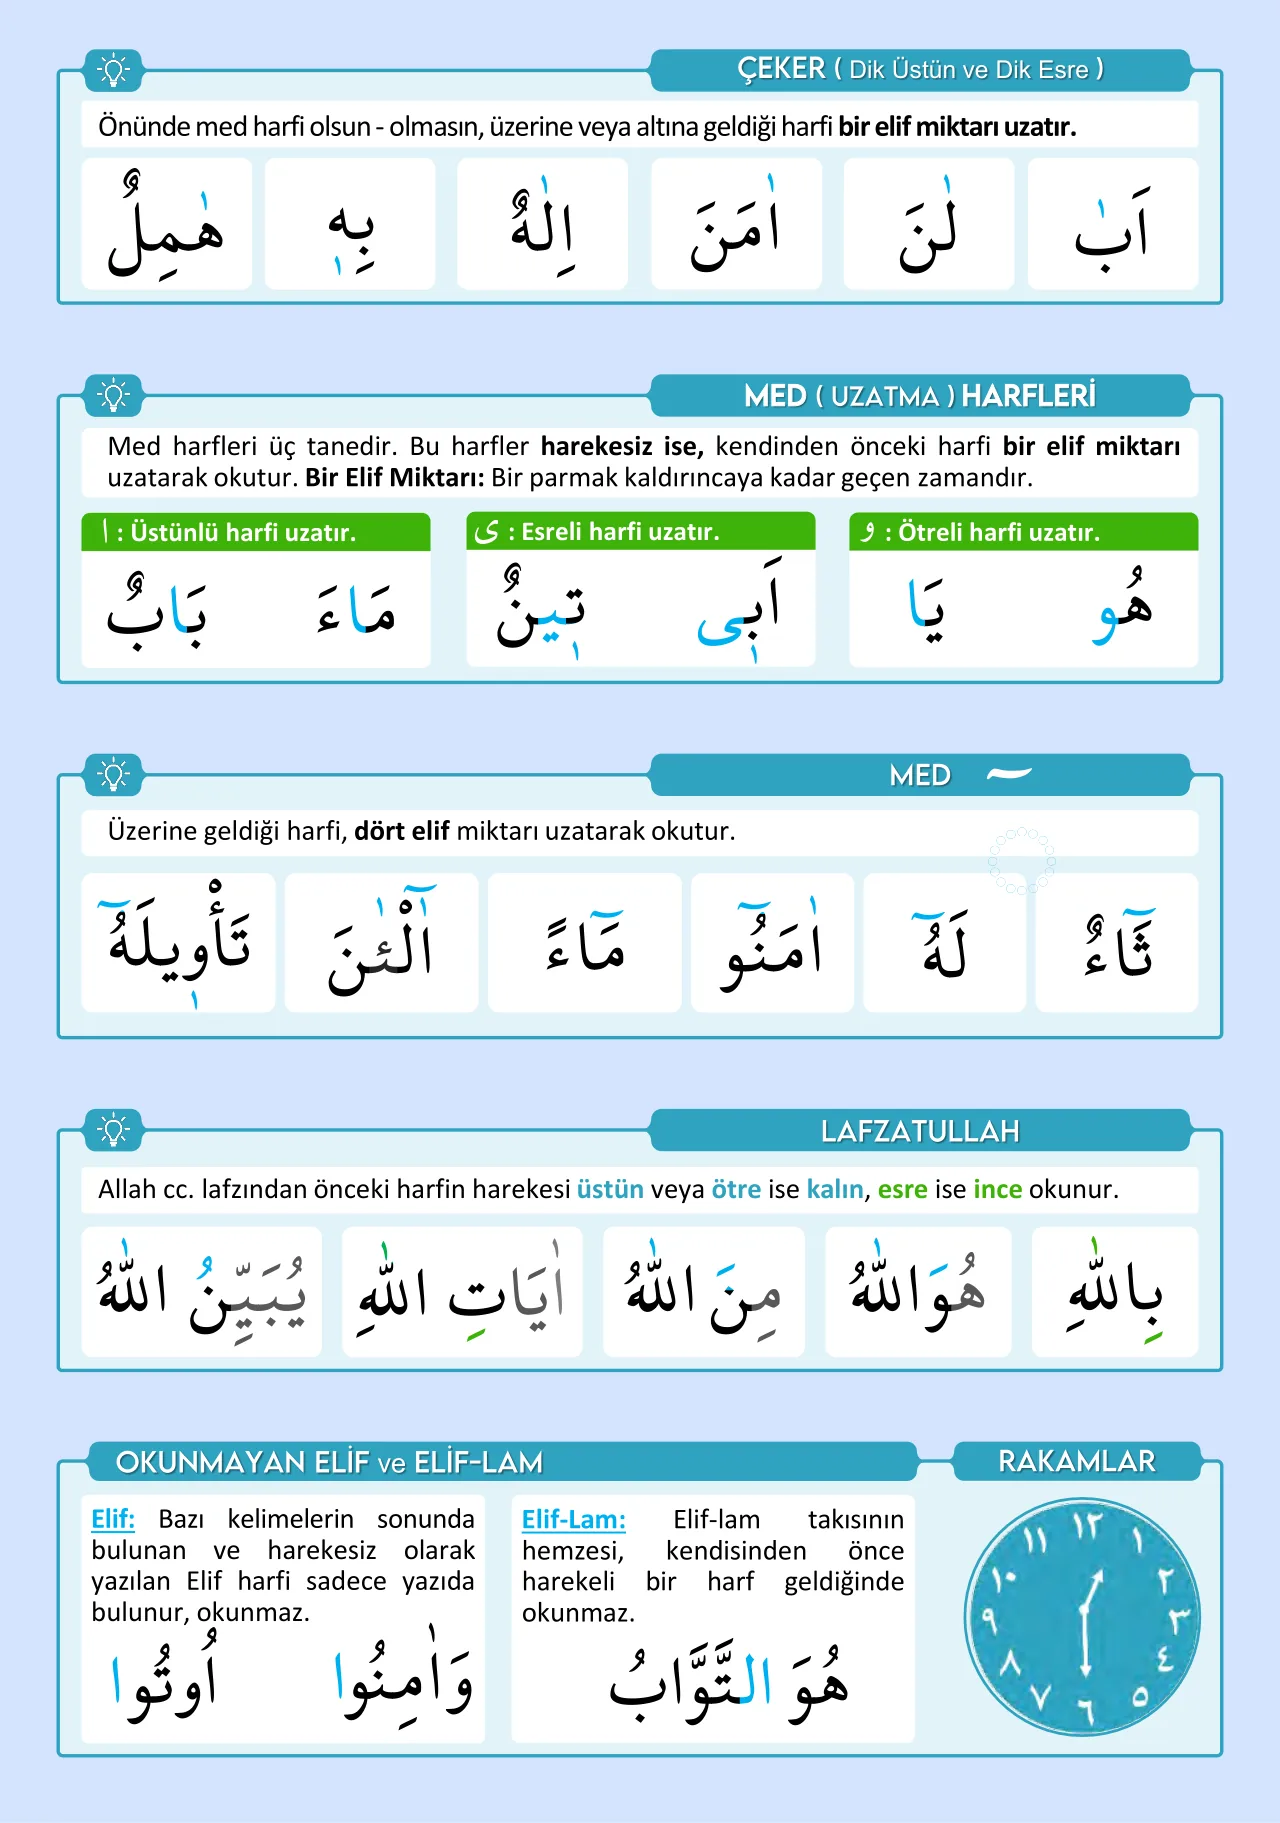 ÇEKER ( Dik Üstün ve Dik Esre )
Önünde med harfi olsun - olmasın, üzerine veya altına geldiği harfi bir elif miktarı uzatır.
اَبٰ لٰنَ اٰمَنَ اِلٰهٌ بِهٖ هٰمِلٌ
MED ( UZATMA ) HARFLERİ
Med harfleri üç tanedir. Bu harfler harekesiz ise, kendinden önceki harfi bir elif miktarı
uzatarak okutur. Bir Elif Miktarı: Bir parmak kaldırıncaya kadar geçen zamandır.
ا : Üstünlü harfi uzatır.
مَاءَ بَابٌ
ى : Esreli harfi uzatır.
اَبٖى تٖينٌ
و : Ötreli harfi uzatır.
هُو يَا
MED ٓ
Üzerine geldiği harfi, dört elif miktarı uzatarak okutur.
ثَٓاءٌ لَهُٓ اٰمَنُٓو مَٓاءً آٰلْـٰٔنَ تَأْوٖيلَهُٓ
LAFZATULLAH
Allah cc. lafzından önceki harfin harekesi üstün veya ötre ise kalın, esre ise ince okunur.
بِاللّٰهِ هُوَاللّٰهُ مِنَ اللّٰهُ اٰيَاتِ اللّٰهِ يُبَيِّنُ اللّٰهُ
OKUNMAYAN ELİF ve ELİF-LAM
Elif: Bazı kelimelerin sonunda
bulunan ve harekesiz olarak
yazılan Elif harfi sadece yazıda
bulunur, okunmaz.
وَاٰمِنُوا اُوتُوا
Elif-Lam: Elif-lam takısının
hemzesi, kendisinden önce
harekeli bir harf geldiğinde
okunmaz.
هُوَ التَّوَّابُ
RAKAMLAR
١٢
١
٢
٣
٤
٥
٦
٧
٨
٩
١٠
١١